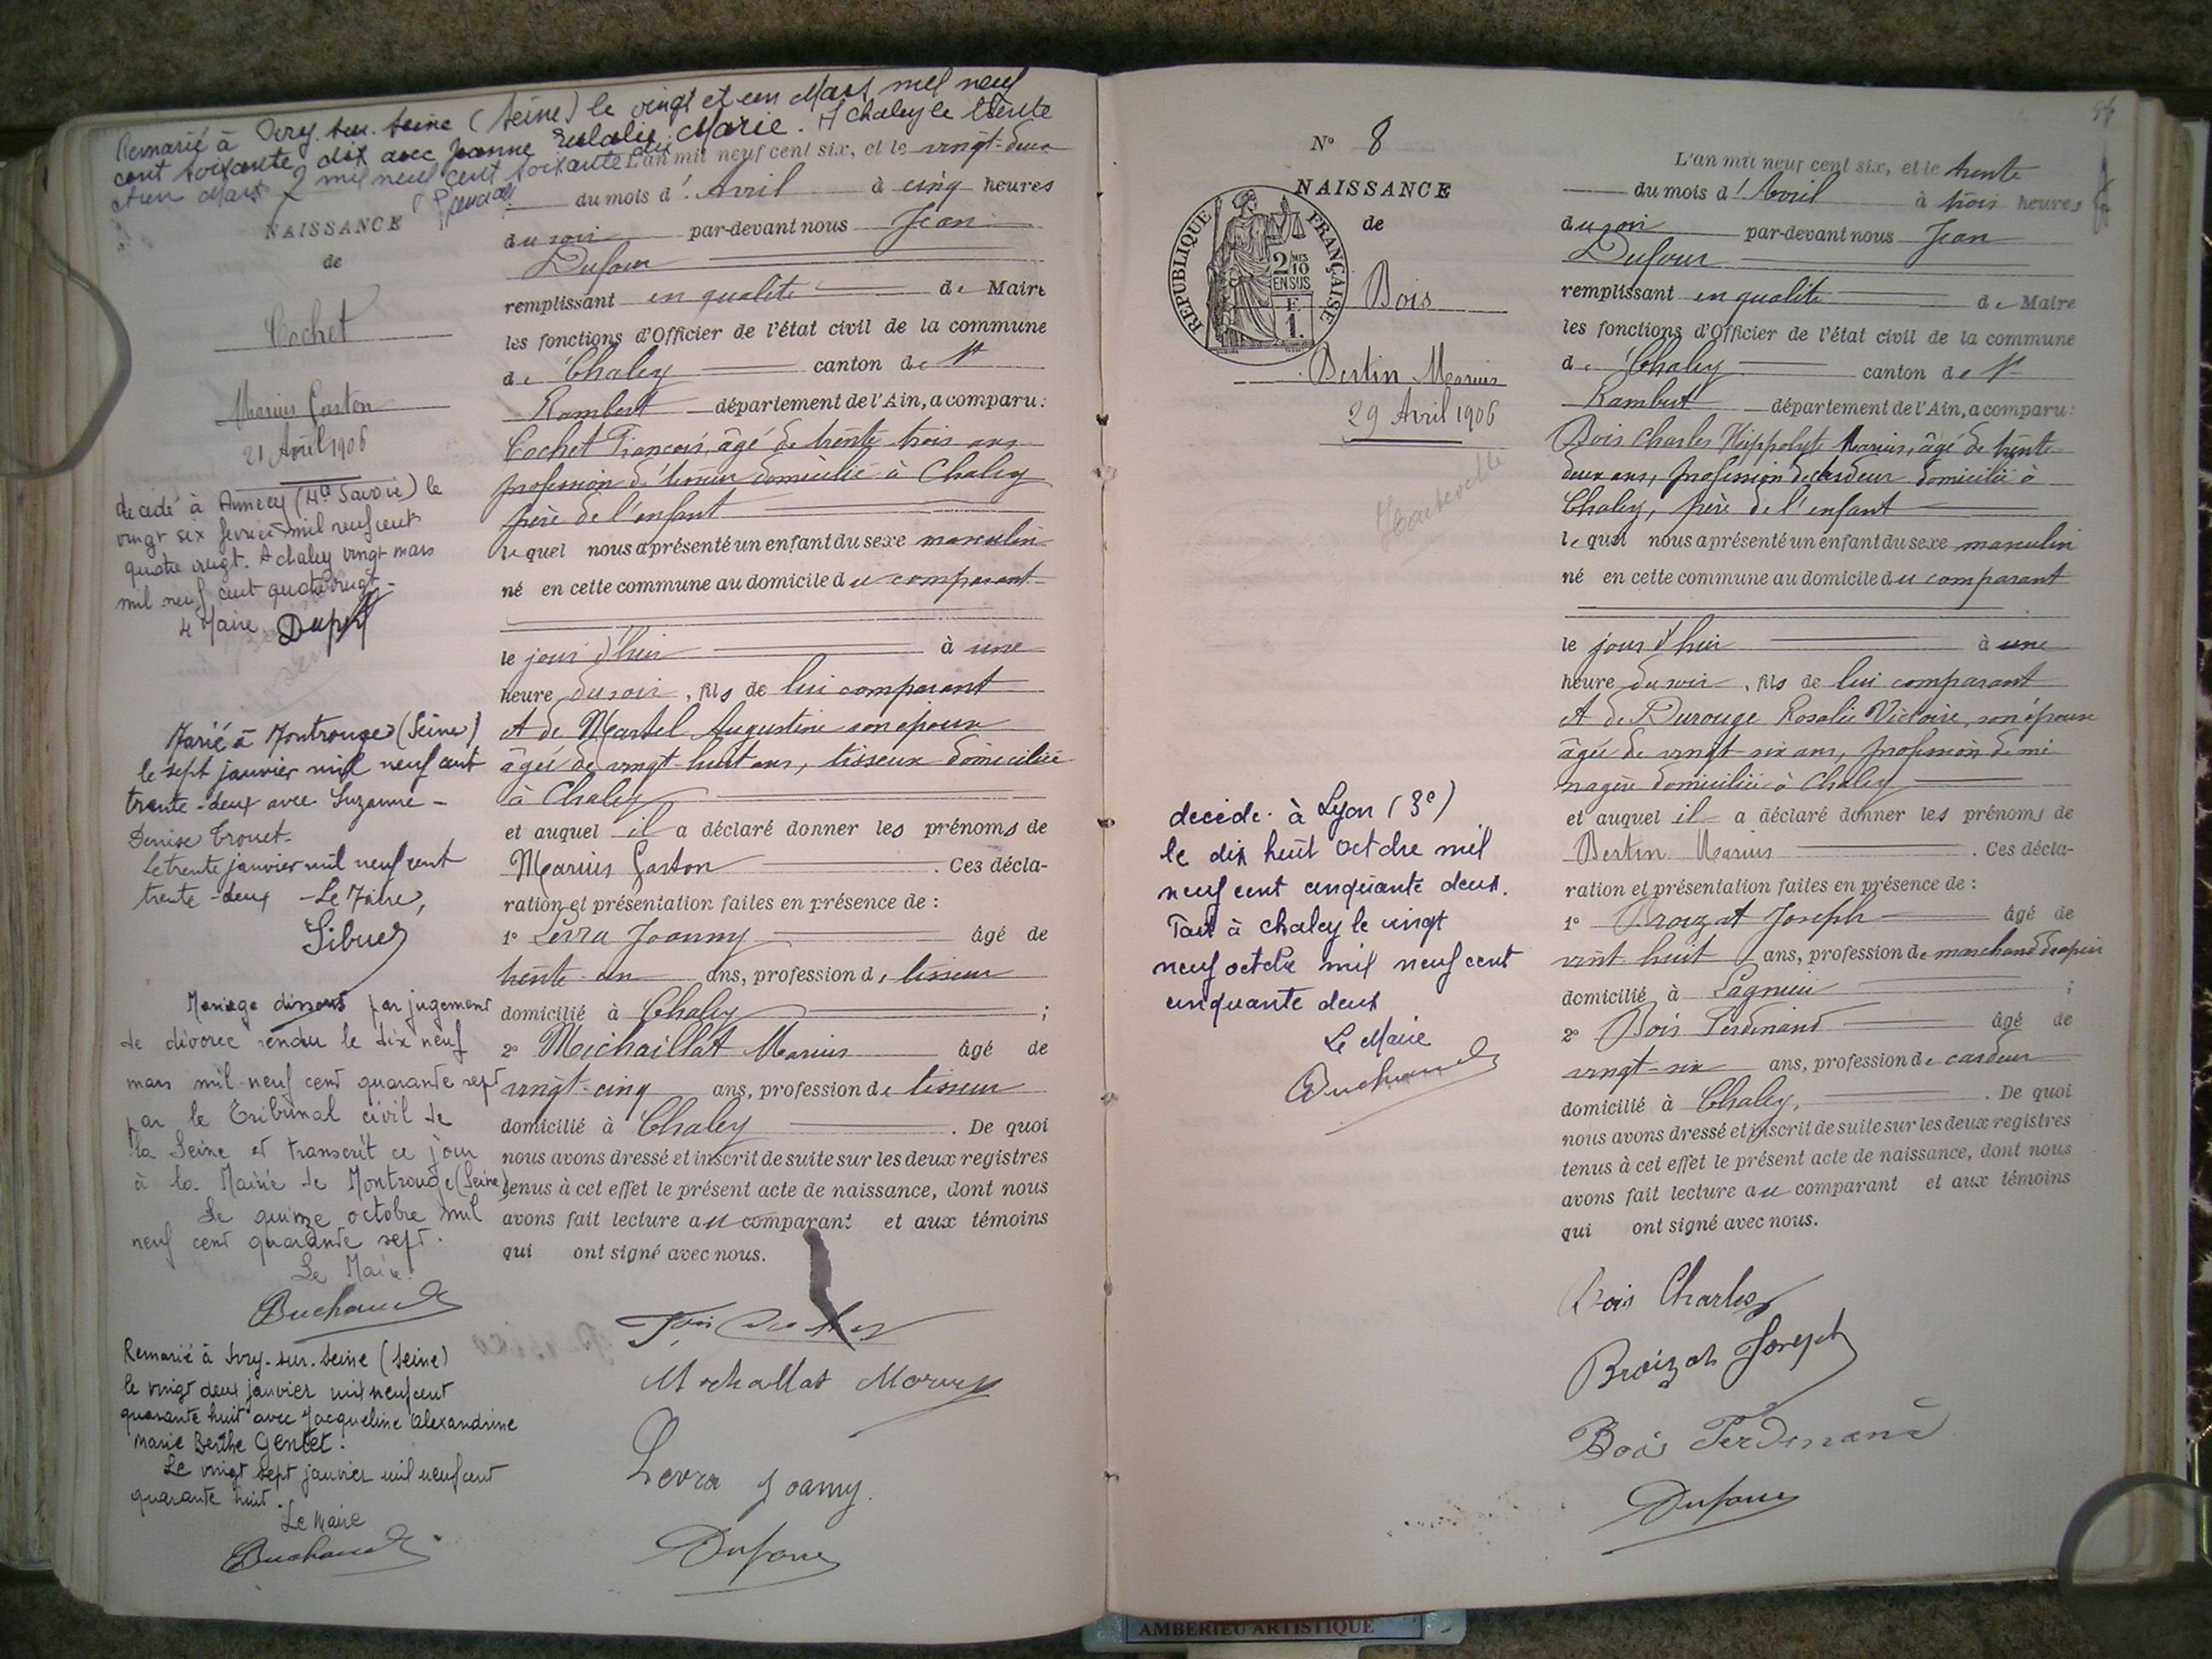 Remarié à Ivry-sur-Seine (Seine) le vingt et un Mars mil neuf
cent soixante dix avec Jeanne Eulalie Marie. A Chaley le trente
et un Mars mil neuf cent soixante dix
NAISSANCE
de
Cochet
Marius Gaston
21 Avril 1906
décédé à Annecy (Hte Savoie) le
vingt six février mil neuf cent
quatre vingt. A chaley vingt mars
mil neuf cent quatre vingt -
le Maire Dupit
Marié à Montrouge (Seine)
le sept janvier mil neuf cent
trente-deux avec Suzanne -
Denise Trouet.
Le trente janvier mil neuf cent
trente-deux - Le Maire,
Sibuet
Mariage dissout par jugement
de divorce rendu le dix neuf
mars mil neuf cent quarante sept
par le Tribunal civil de
la Seine et transcrit ce jour
à la Mairie de Montrouge (Seine)
Le quinze octobre mil
neuf cent quarante sept.
Le Maire
Buchaud
Remarié à Ivry-sur-Seine (Seine)
le vingt deux janvier mil neuf cent
quarante huit avec Jacqueline Alexandrine
Marie Berthe Gentet.
Le vingt sept janvier mil neuf cent
quarante huit.
Le Maire
Buchaud
L'an mil neuf cent six, et le vingt-deux
du mois d'Avril à cinq heures
du soir par-devant nous Jean
Dufour
remplissant en qualité de Maire
les fonctions d'Officier de l'état civil de la commune
de Chaley canton de St
Rambert département de l'Ain, a comparu:
Cochet François, âgé de trente trois ans
profession de tisseur domicilié à Chaley
père de l'enfant
lequel nous a présenté un enfant du sexe masculin
né en cette commune au domicile du comparant
le jour d'hier à une
heure du soir, fils de lui comparant
et de Martel Augustine son épouse
âgée de vingt-huit ans, tisseuse domiciliée
à Chaley
et auquel il a déclaré donner les prénoms de
Marius Gaston . Ces décla-
ration et présentation faites en présence de :
1° Levra Joanny âgé de
trente-un ans, profession de tisseur
domicilié à Chaley ;
2° Michaillat Marius âgé de
vingt-cinq ans, profession de tisseur
domicilié à Chaley . De quoi
nous avons dressé et inscrit de suite sur les deux registres
tenus à cet effet le présent acte de naissance, dont nous
avons fait lecture au comparant et aux témoins
qui ont signé avec nous.
Levra Joanny.
Dufour
N° 8
NAISSANCE
de
REPUBLIQUE FRANÇAISE
2/10 MES
EN SUS
F.
1.
Bois
Bertin Marius
29 Avril 1906
Hauteville
décédé à Lyon (3e)
le dix huit octobre mil
neuf cent cinquante deux.
Fait à chaley le vingt
neuf octobre mil neuf cent
cinquante deux
Le Maire
Buchaud
L'an mil neuf cent six, et le trente
du mois d'Avril à trois heures
du soir par-devant nous Jean
Dufour
remplissant en qualité de Maire
les fonctions d'Officier de l'état civil de la commune
de Chaley canton de St
Rambert département de l'Ain, a comparu:
Bois Charles Hippolyte Marius, âgé de trente
deux ans, profession de cardeur domicilié à
Chaley, père de l'enfant
lequel nous a présenté un enfant du sexe masculin
né en cette commune au domicile du comparant
le jour d'hier à une
heure du soir, fils de lui comparant
et de Durouge Rosalie Victoire, son épouse
âgée de vingt-six ans, profession de mé
nagère domiciliée à Chaley
et auquel il a déclaré donner les prénoms de
Bertin Marius . Ces décla-
ration et présentation faites en présence de :
1° Broizat Joseph âgé de
vint huit ans, profession de marchand drapier
domicilié à Lagnieu ;
2° Bois Ferdinand âgé de
vingt-six ans, profession de cardeur
domicilié à Chaley, . De quoi
nous avons dressé et inscrit de suite sur les deux registres
tenus à cet effet le présent acte de naissance, dont nous
avons fait lecture au comparant et aux témoins
qui ont signé avec nous.
Bois Charles
Broizat Joseph
Bois Ferdinand
Dufour
AMBERIEU ARTISTIQUE